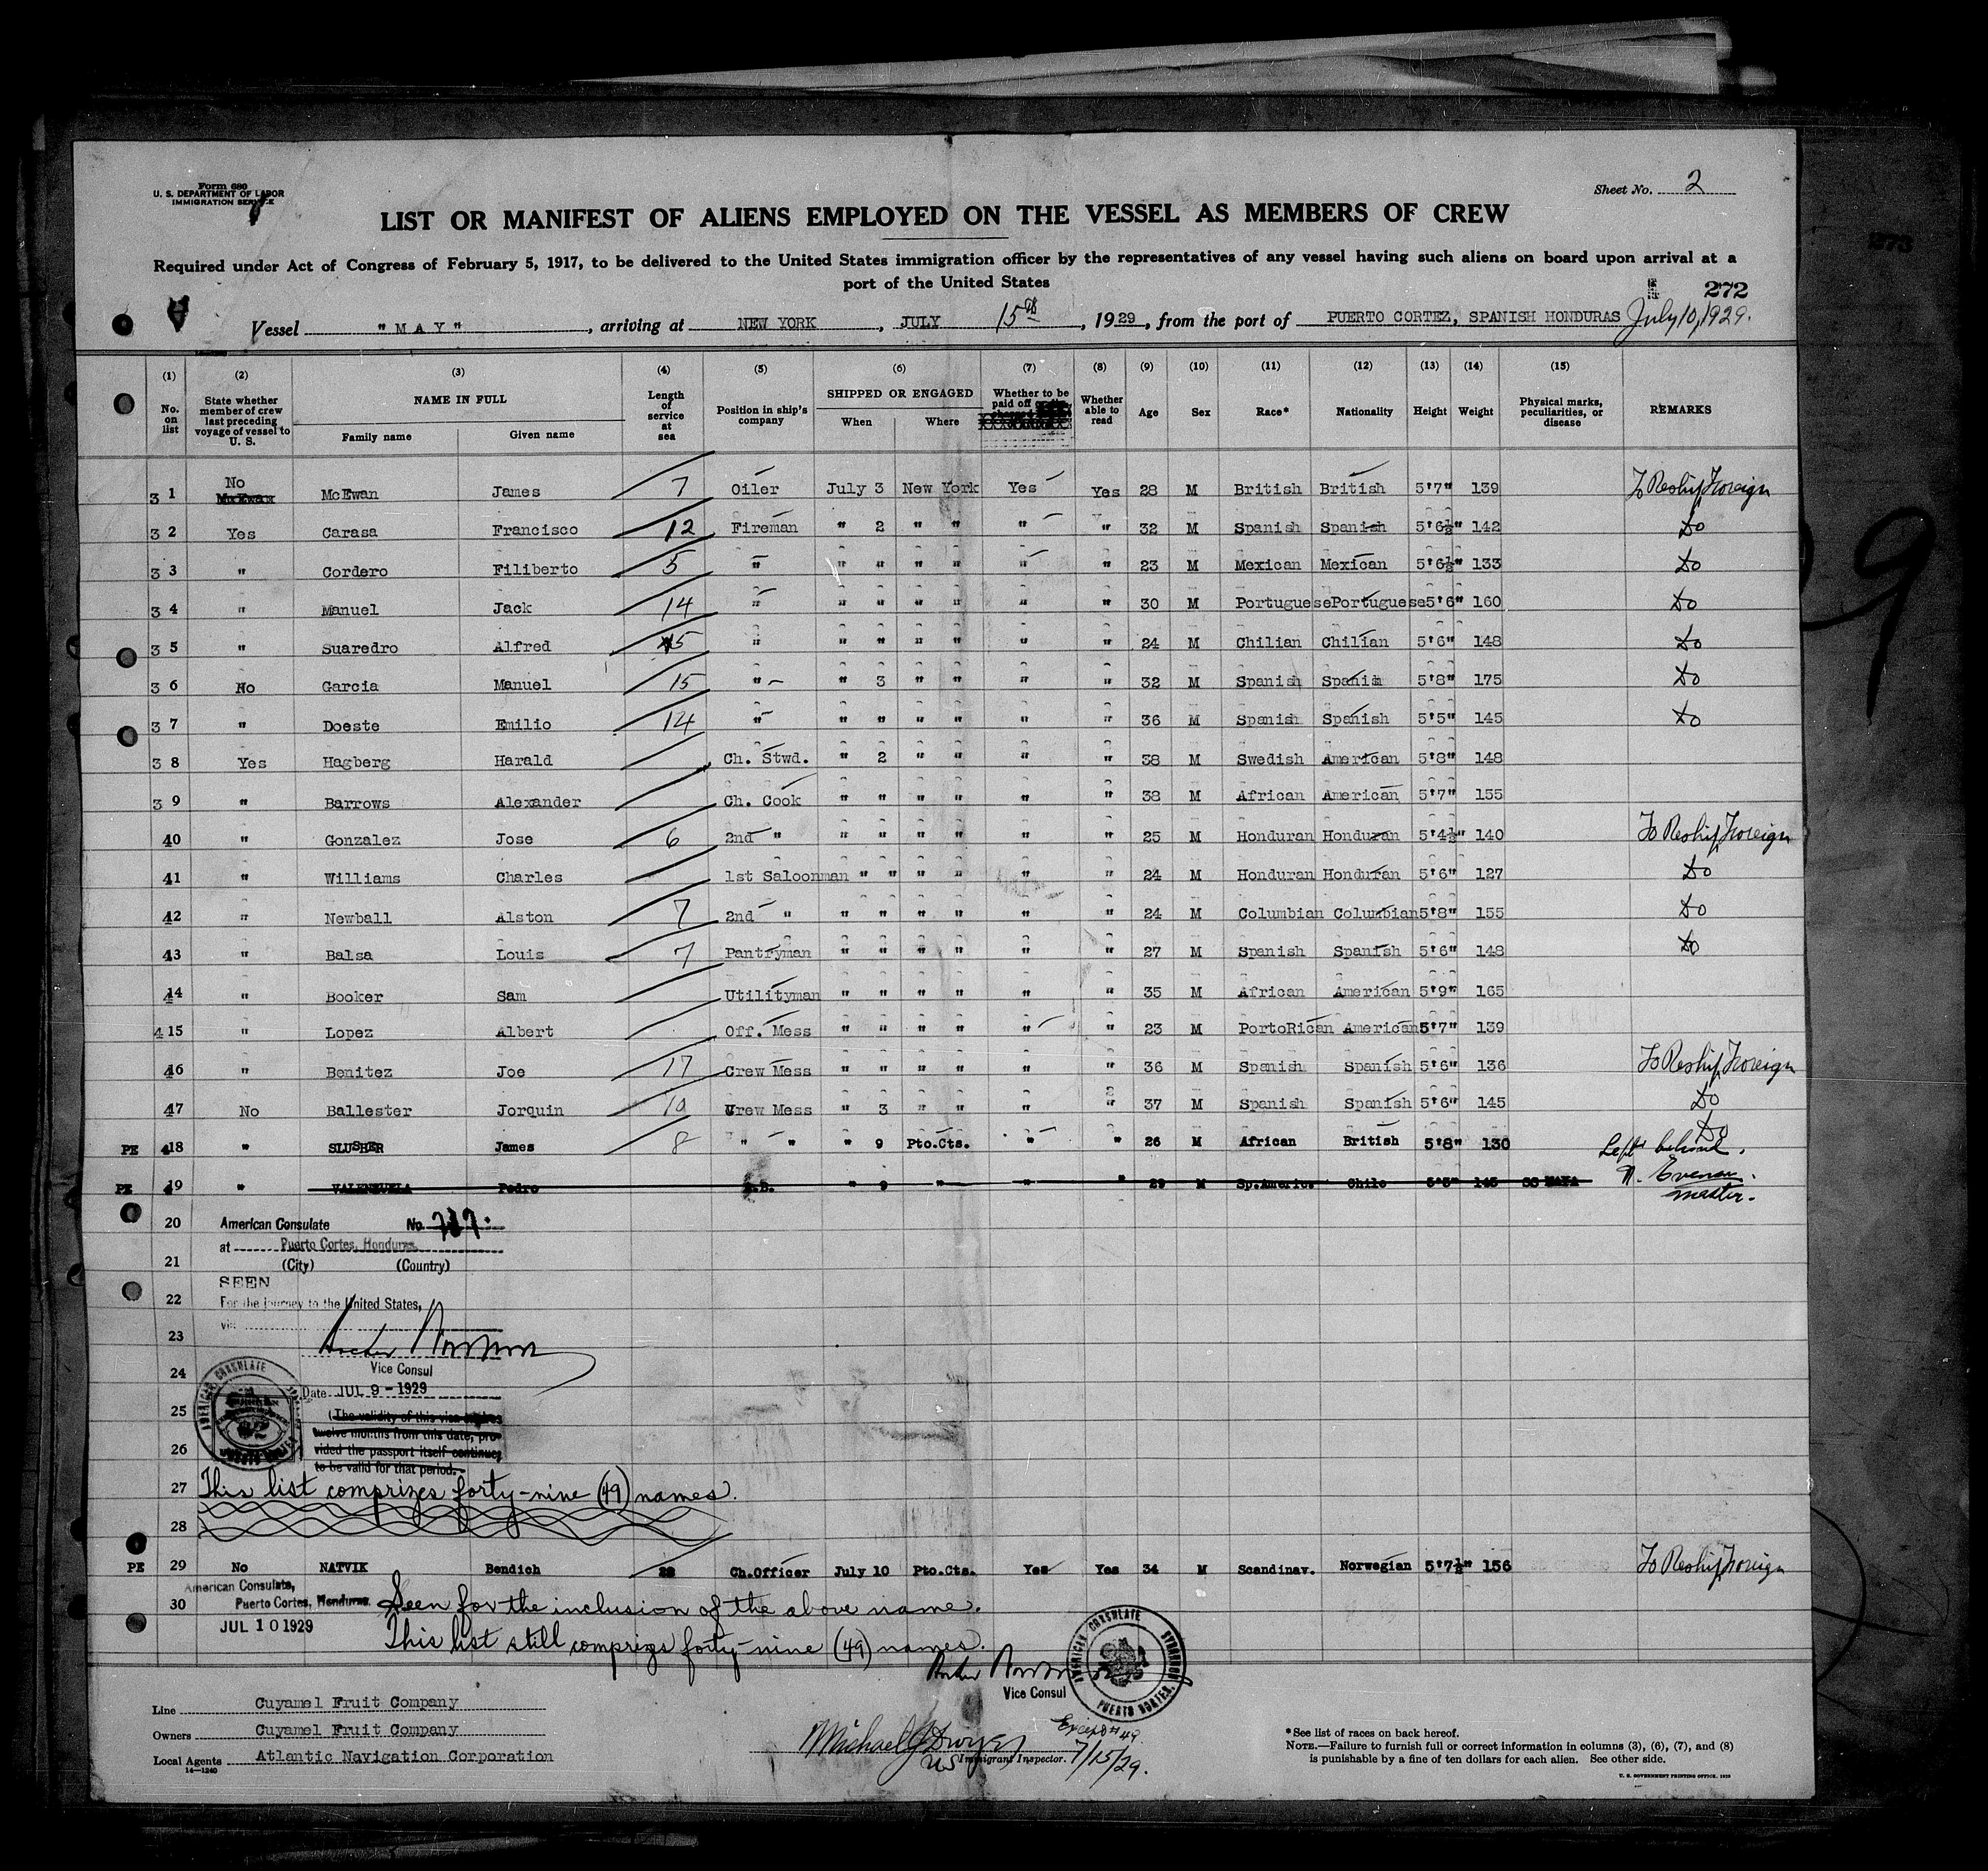 Form 680
U. S. DEPARTMENT OF LABOR
IMMIGRATION SERVICE
Sheet No. 2
LIST OR MANIFEST OF ALIENS EMPLOYED ON THE VESSEL AS MEMBERS OF CREW
Required under Act of Congress of February 5, 1917, to be delivered to the United States immigration officer by the representatives of any vessel having such aliens on board upon arrival at a
port of the United States
273
272
Vessel "MAY", arriving at NEW YORK, JULY 15th, 1929, from the port of PUERTO CORTEZ, SPANISH HONDURAS July 10, 1929.
(1) (2) (3) (4) (5) (6) (7) (8) (9) (10) (11) (12) (13) (14) (15)
No. on list State whether member of crew last preceding voyage of vessel to U. S. NAME IN FULL Family name Given name Length of service at sea Position in ship's company SHIPPED OR ENGAGED When Where Whether to be paid off Whether able to read Age Sex Race* Nationality Height Weight Physical marks, peculiarities, or disease REMARKS
3 1 No McEwan McEwan James 7 Oiler July 3 New York Yes Yes 28 M British British 5'7" 139 To Reship Foreign
3 2 Yes Carasa Francisco 12 Fireman " 2 " " " " 32 M Spanish Spanish 5'6½" 142 Do
3 3 " Cordero Filiberto 5 " " " " " " " 23 M Mexican Mexican 5'6½" 133 Do
3 4 " Manuel Jack 14 " " " " " " " 30 M Portuguese Portuguese 5'6" 160 Do
3 5 " Suaredro Alfred 15 " " " " " " " 24 M Chilian Chilian 5'6" 148 Do
3 6 No Garcia Manuel 15 " " 3 " " " " 32 M Spanish Spanish 5'8" 175 Do
3 7 " Doeste Emilio 14 " " " " " " " 36 M Spanish Spanish 5'5" 145 Do
3 8 Yes Hagberg Harald Ch. Stwd. " 2 " " " " 38 M Swedish American 5'8" 148
3 9 " Barrows Alexander Ch. Cook " " " " " " 38 M African American 5'7" 155
40 " Gonzalez Jose 6 2nd " " " " " " " 25 M Honduran Honduran 5'4½" 140 To Reship Foreign
41 " Williams Charles 1st Saloonman " " " " " " 24 M Honduran Honduran 5'6" 127 Do
42 " Newball Alston 7 2nd " " " " " " " 24 M Columbian Columbian 5'8" 155 Do
43 " Balsa Louis 7 Pantryman " " " " " " 27 M Spanish Spanish 5'6" 148 Do
414 " Booker Sam Utilityman " " " " " " 35 M African American 5'9" 165
415 " Lopez Albert Off. Mess " " " " " " 23 M PortoRican American 5'7" 139
46 " Benitez Joe 17 Crew Mess " " " " " " 36 M Spanish Spanish 5'6" 136 To Reship Foreign
47 No Ballester Jorquin 10 Crew Mess " 3 " " " " 37 M Spanish Spanish 5'6" 145 Do
PE 418 " SLUSHER James 8 " " " 9 Pto.Cts. " " 26 M African British 5'8" 130 Do
PE 19 " VALENZUELA Pedro " 9 " " " 29 M Sp.Americ. Chile 5'5" 145 SS MAYA Left behind.
Master.
20 American Consulate No.
21 at Puerto Cortes, Honduras
(City) (Country)
SEEN
22 For the journey to the United States,
via
23
Vice Consul
24
Date JUL 9 - 1929
25 (The validity of this visa expires
twelve months from this date, pro-
26 vided the passport itself continues
to be valid for that period.
AMERICAN CONSULATE
27 This list comprizes forty-nine (49) names.
28
PE 29 No NATVIK Bendich 28 Ch.Officer July 10 Pto.Cts. Yes Yes 34 M Scandinav. Norwegian 5'7½" 156 To Reship Foreign
American Consulate,
30 Puerto Cortes, Honduras. Seen for the inclusion of the above name.
JUL 10 1929 This list still comprizes forty-nine (49) names.
Vice Consul
AMERICAN CONSULATE
Line Cuyamel Fruit Company
Owners Cuyamel Fruit Company
Local Agents Atlantic Navigation Corporation
14—1240
Except # 49
Michael J Dwyer
US Immigrant Inspector. 7/15/29.
*See list of races on back hereof.
NOTE.—Failure to furnish full or correct information in columns (3), (6), (7), and (8)
is punishable by a fine of ten dollars for each alien. See other side.
U. S. GOVERNMENT PRINTING OFFICE, 1928
9